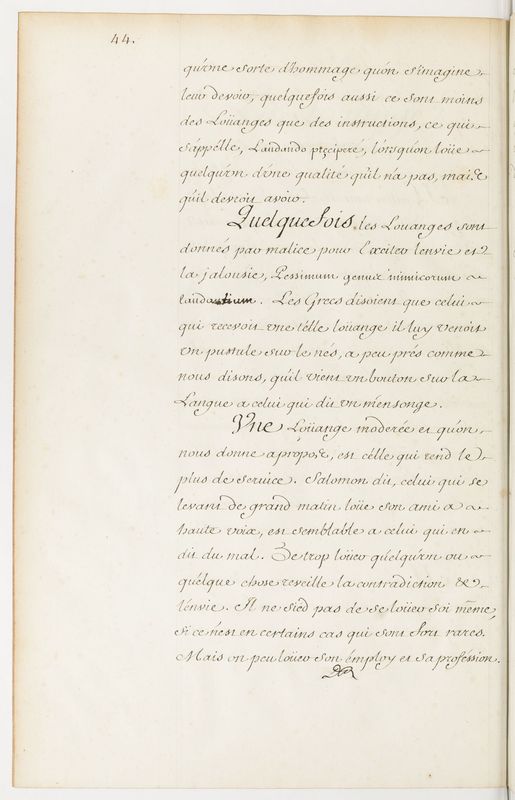 44.
qu'vne sorte d'hommage qu'on s'imagine
leur devoir, quelquefois aussi ce sont moins
des Loüanges que des instructions, ce qui
s'appélle, Laudando præcipere, lorsqu'on loüe
quelqu'vn d'vne qualité qu'il n'a pas, mais
qu'il devroit avoir.
Quelquefois les Louanges sont
donnés par malice pour l'exciter l'envie et
la jalousie, Pessimum genus inimicorum
laudantium. Les Grecs disoient que celui
qui recevoit vne télle loüange il luy venoit
vn pustule sur le nés, a peu prés comme
nous disons, qu'il vient vn bouton sur la
Langue a celui qui dit vn mensonge.
Vne Loüange moderée et qu'on
nous donne a propos, est célle qui rend le
plus de service. Salomon dit, celui qui se
levant de grand matin loüe son ami a
haute voix, est semblable a celui qui en
dit du mal. De trop loüer quelqu'vn ou
quélque chose reveille la contradiction &
l'énvie. Il ne sied pas de se loüer soi méme,
si ce n'est en certains cas qui sont fort rares.
Mais on peu loüer son émploy et sa proféssion.